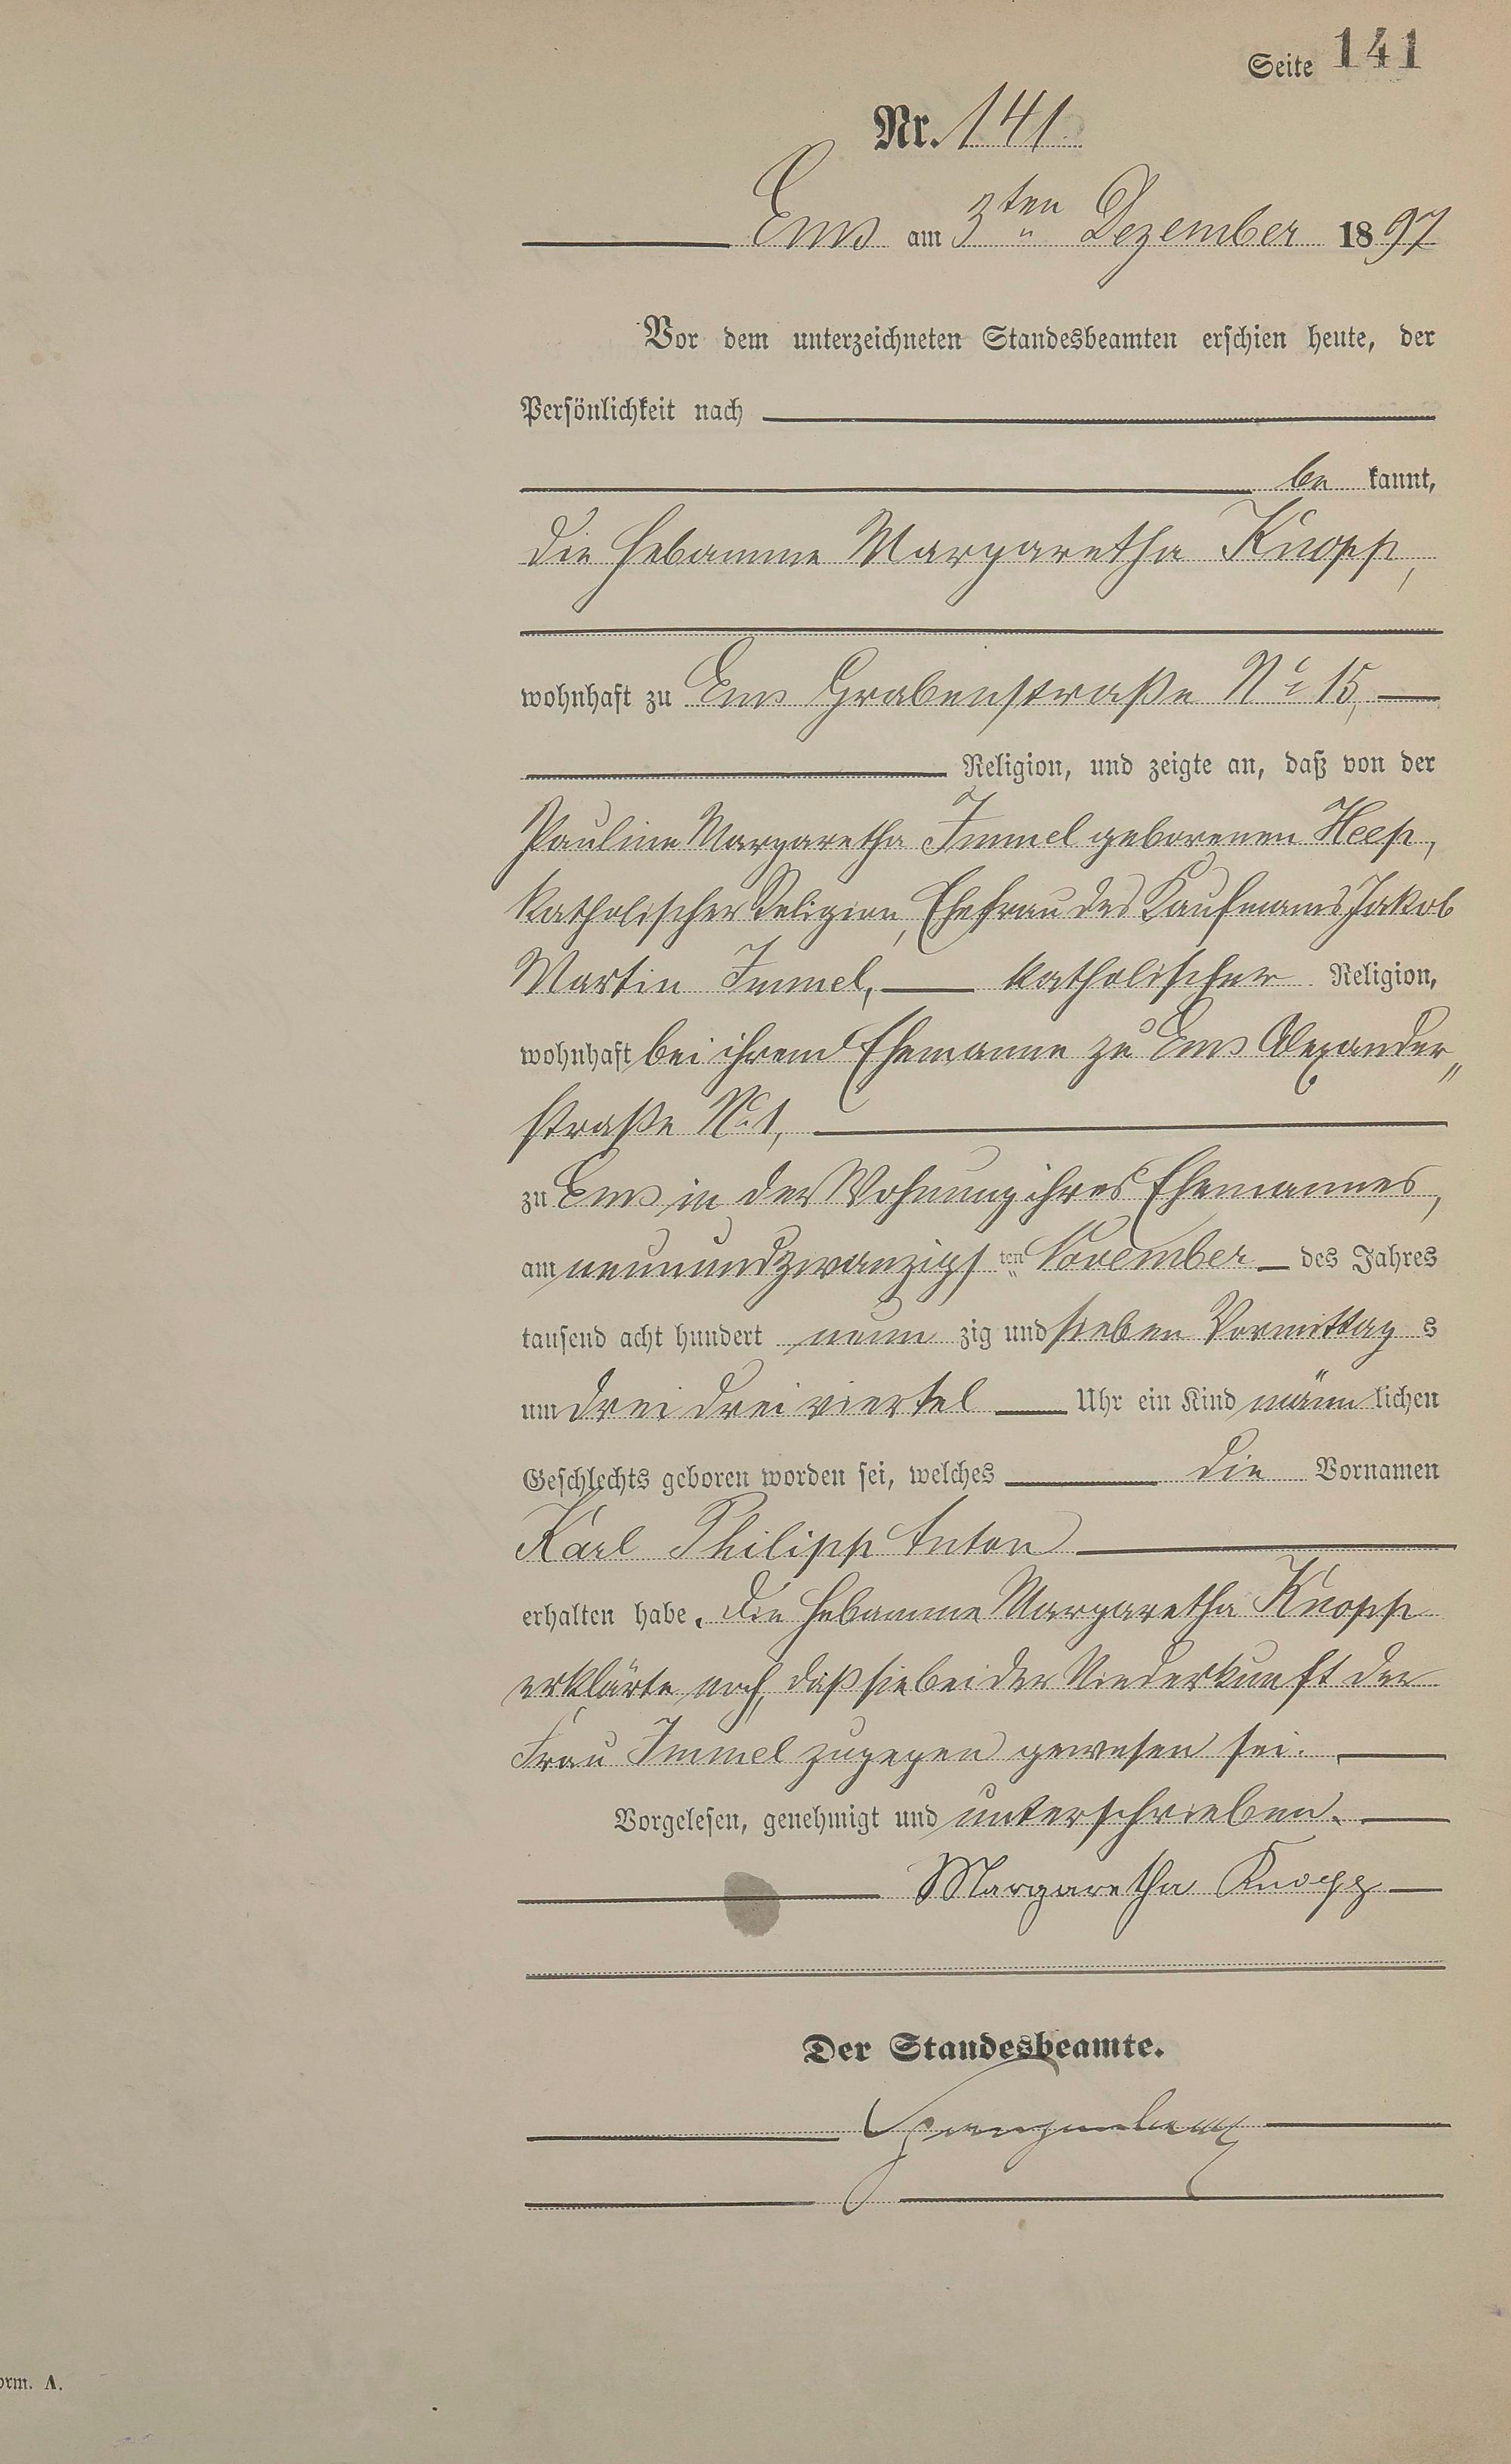 Seite 141
Nr. 141
Ems am 3ten Dezember 1897
Vor dem unterzeichneten Standesbeamten erschien heute, der
Persönlichkeit nach
be kannt,
die Hebamme Margaretha Knopp,
wohnhaft zu Ems Grabenstraße No 15,
Religion, und zeigte an, daß von der
Pauline Margaretha Immel geborenen Heep,
katholischer Religion, Ehefrau des Kaufmanns Jakob
Martin Immel, katholischer Religion,
wohnhaft bei ihrem Ehemanne zu Ems Alexander„
straße No 1,
zu Ems in der Wohnung ihres Ehemannes,
am neunundzwanzigs ten November des Jahres
tausend acht hundert neun zig und sieben Vormittag s
um drei drei viertel Uhr ein Kind männ lichen
Geschlechts geboren worden sei, welches die Vornamen
Karl Philipp Anton
erhalten habe. Die Hebamme Margaretha Knopp
erklärte noch, daß sie bei der Niederkunft der
Frau Immel zugegen gewesen sei.
Vorgelesen, genehmigt und unterschrieben.
Margaretha Knopp
Der Standesbeamte.
orm. A.